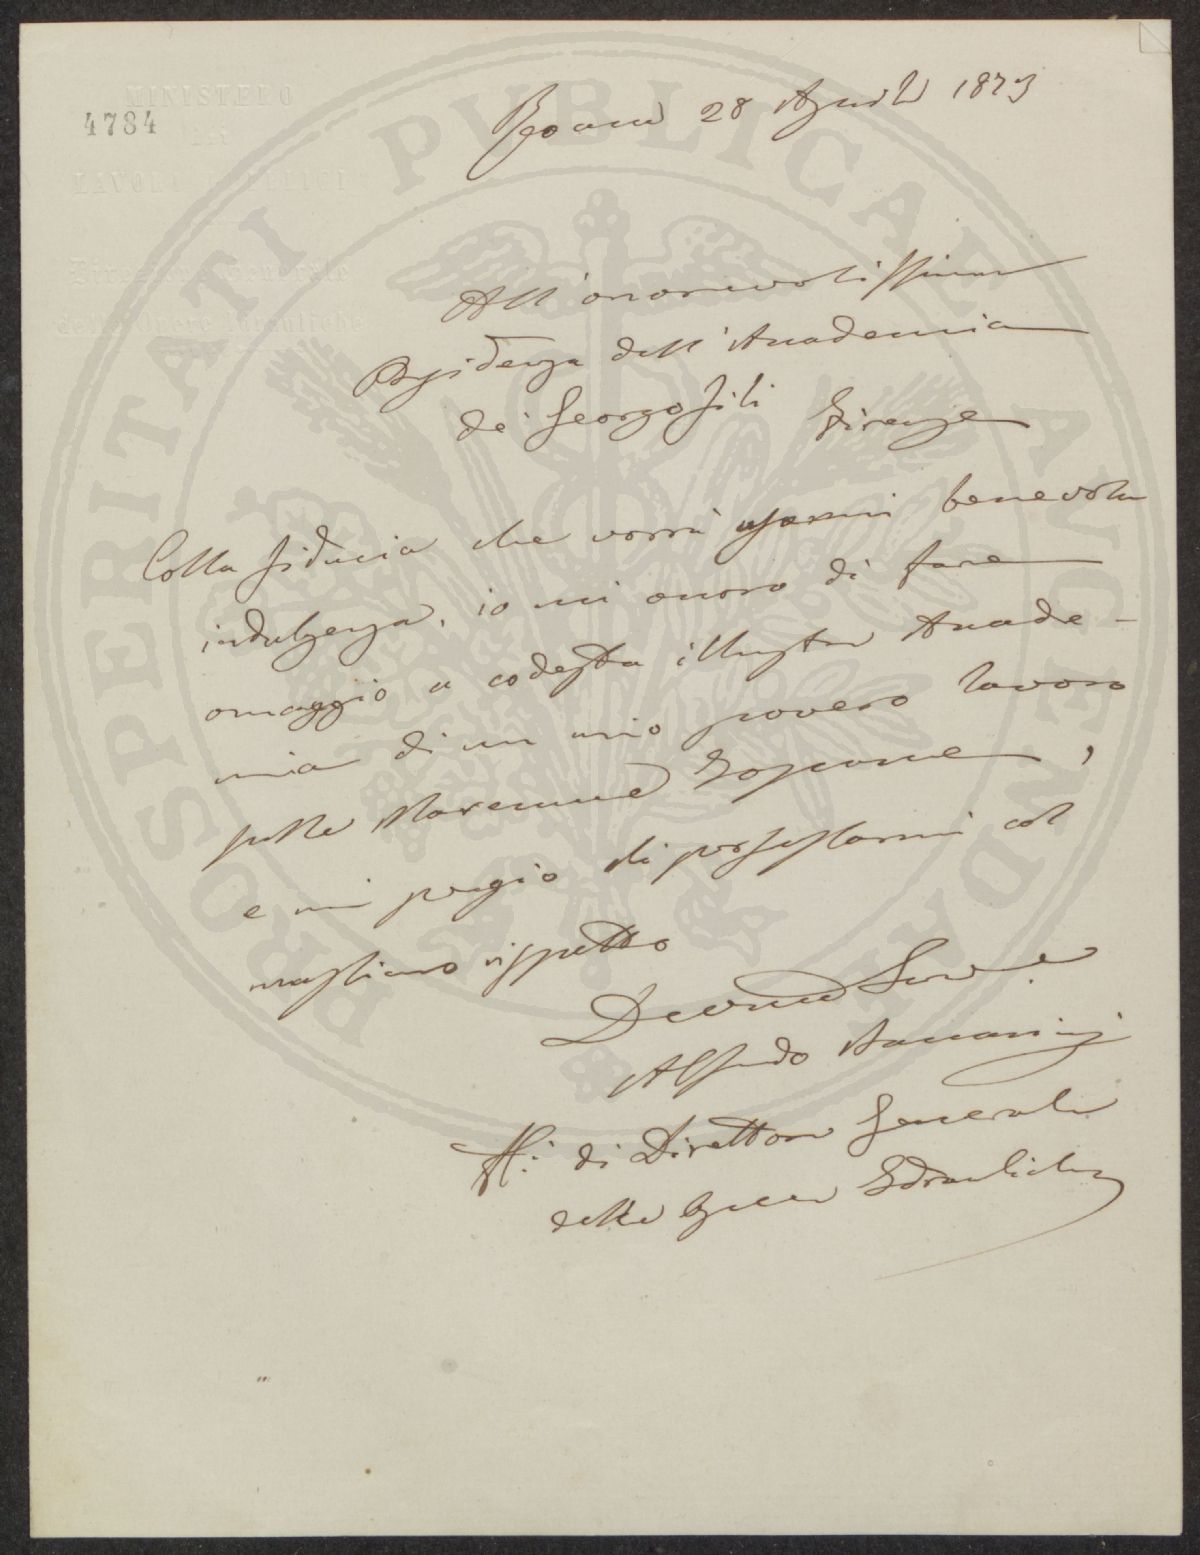 MINISTERO
4784
DEI
LAVORI PUBBLICI
Direzione Generale
delle Opere Idrauliche
PROSPERITATI PUBLICAE AUGENDAE
Roma 28 Aprile 1873
All'onorevolissima
Presidenza dell'Accademia
de' Georgofili Firenze
Colla fiducia che vorrà usarmi benevola
indulgenza, io mi onoro di fare
omaggio a codesta illustre Accade-
mia di un mio povero lavoro
sulle Maremme Toscane,
e mi pregio di professarmi col
massimo rispetto
Devmo Serve
Alfredo Baccarini
ff: di Direttore Generale
delle Opere Idrauliche